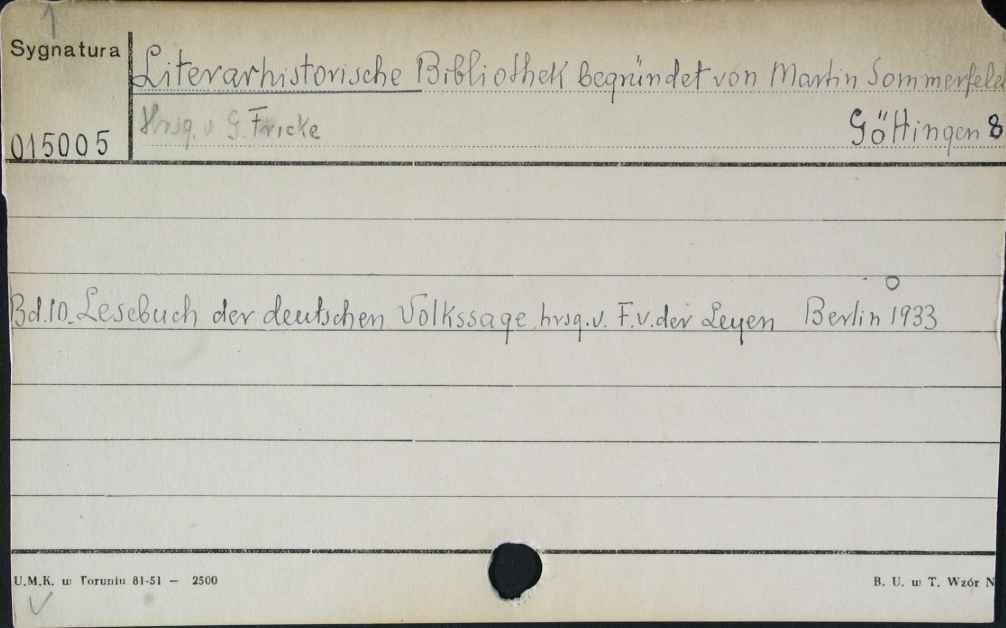 Sygnatura
Literarhistorische Bibliothek begründet von Martin Sommerfeld
Hrsg. v G. Fricke Göttingen 8
015005
Bd.10. Lesebuch der deutschen Volkssage, hrsg.v. F.v.der Leyen Berlin 1933
U.M.K. w Toruniu 81-51 — 2500
B. U. w T. Wzór N